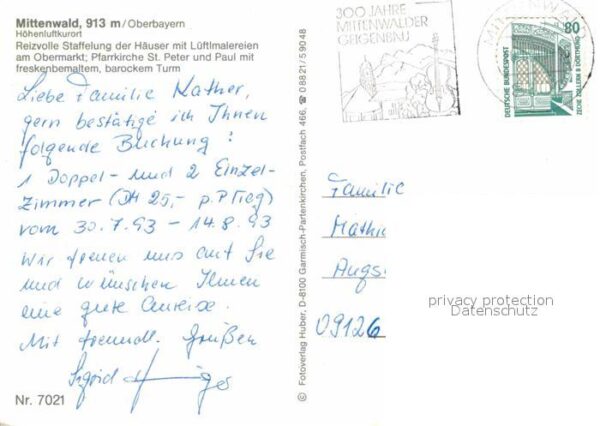 Mittenwald, 913 m/Oberbayern
Höhenluftkurort
Reizvolle Staffelung der Häuser mit Lüftlmalereien
am Obermarkt; Pfarrkirche St. Peter und Paul mit
freskenbemaltem, barockem Turm
Liebe Familie Kather,
gern bestätige ich Ihnen
folgende Buchung:
1 Doppel- und 2 Einzel-
zimmer (DM 25,- p.P Tag)
vom 30.7.93 - 14.8.93
Wir freuen uns auf Sie
und wünschen Ihnen
eine gute Anreise.
Mit freundl. Grüßen
Sigrid
Nr. 7021
© Fotoverlag Huber, D-8100 Garmisch-Partenkirchen, Postfach 466, ☎ 08821/59048
300 JAHRE
MITTENWALDER
GEIGENBAU
MITTENWALD
80
DEUTSCHE BUNDESPOST
ZECHE ZOLLERN II · DORTMUND
Familie
Augs
09126
privacy protection
Datenschutz